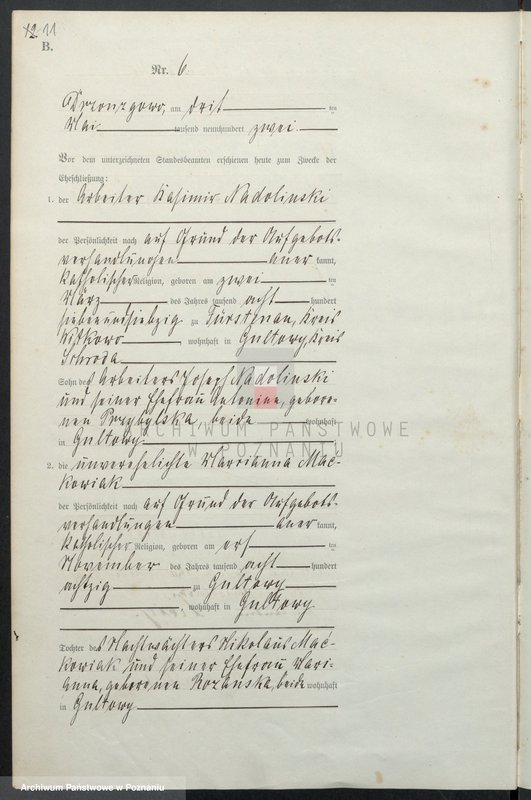 12. 11
B.
Nr. 6.
am drit ten
Mai tausend neunhundert zwei.
Vor dem unterzeichneten Standesbeamten erschienen heute zum Zwecke der
Eheschließung:
1. der Arbeiter Kasimir Nadolinski
der Persönlichkeit nach auf Grund der Aufgebots-
verhandlungen aner kannt,
katholischer Religion, geboren am zwei ten
März des Jahres tausend acht hundert
siebenundsiebzig zu Fürstenau, Kreis
Witkowo, wohnhaft in Gultowy, Kreis
Schroda
Sohn des Arbeiters Joseph Nadolinski
und seiner Ehefrau Antonine, gebore-
nen Przybylska, beide wohnhaft
in Gultowy
ARCHIWUM PAŃSTWOWE
W POZNANIU
2. die unverehelichte Marianna Mac-
kowiak
der Persönlichkeit nach auf Grund der Aufgebots-
verhandlungen aner kannt,
katholischer Religion, geboren am ers ten
November des Jahres tausend acht hundert
achtzig zu Gultowy
, wohnhaft in Gultowy
Tochter des Nachtwächters Nikolaus Mac-
kowiak und seiner Ehefrau Mari-
anna, geborenen Rozanska, beide wohnhaft
in Gultowy
Archiwum Państwowe w Poznaniu